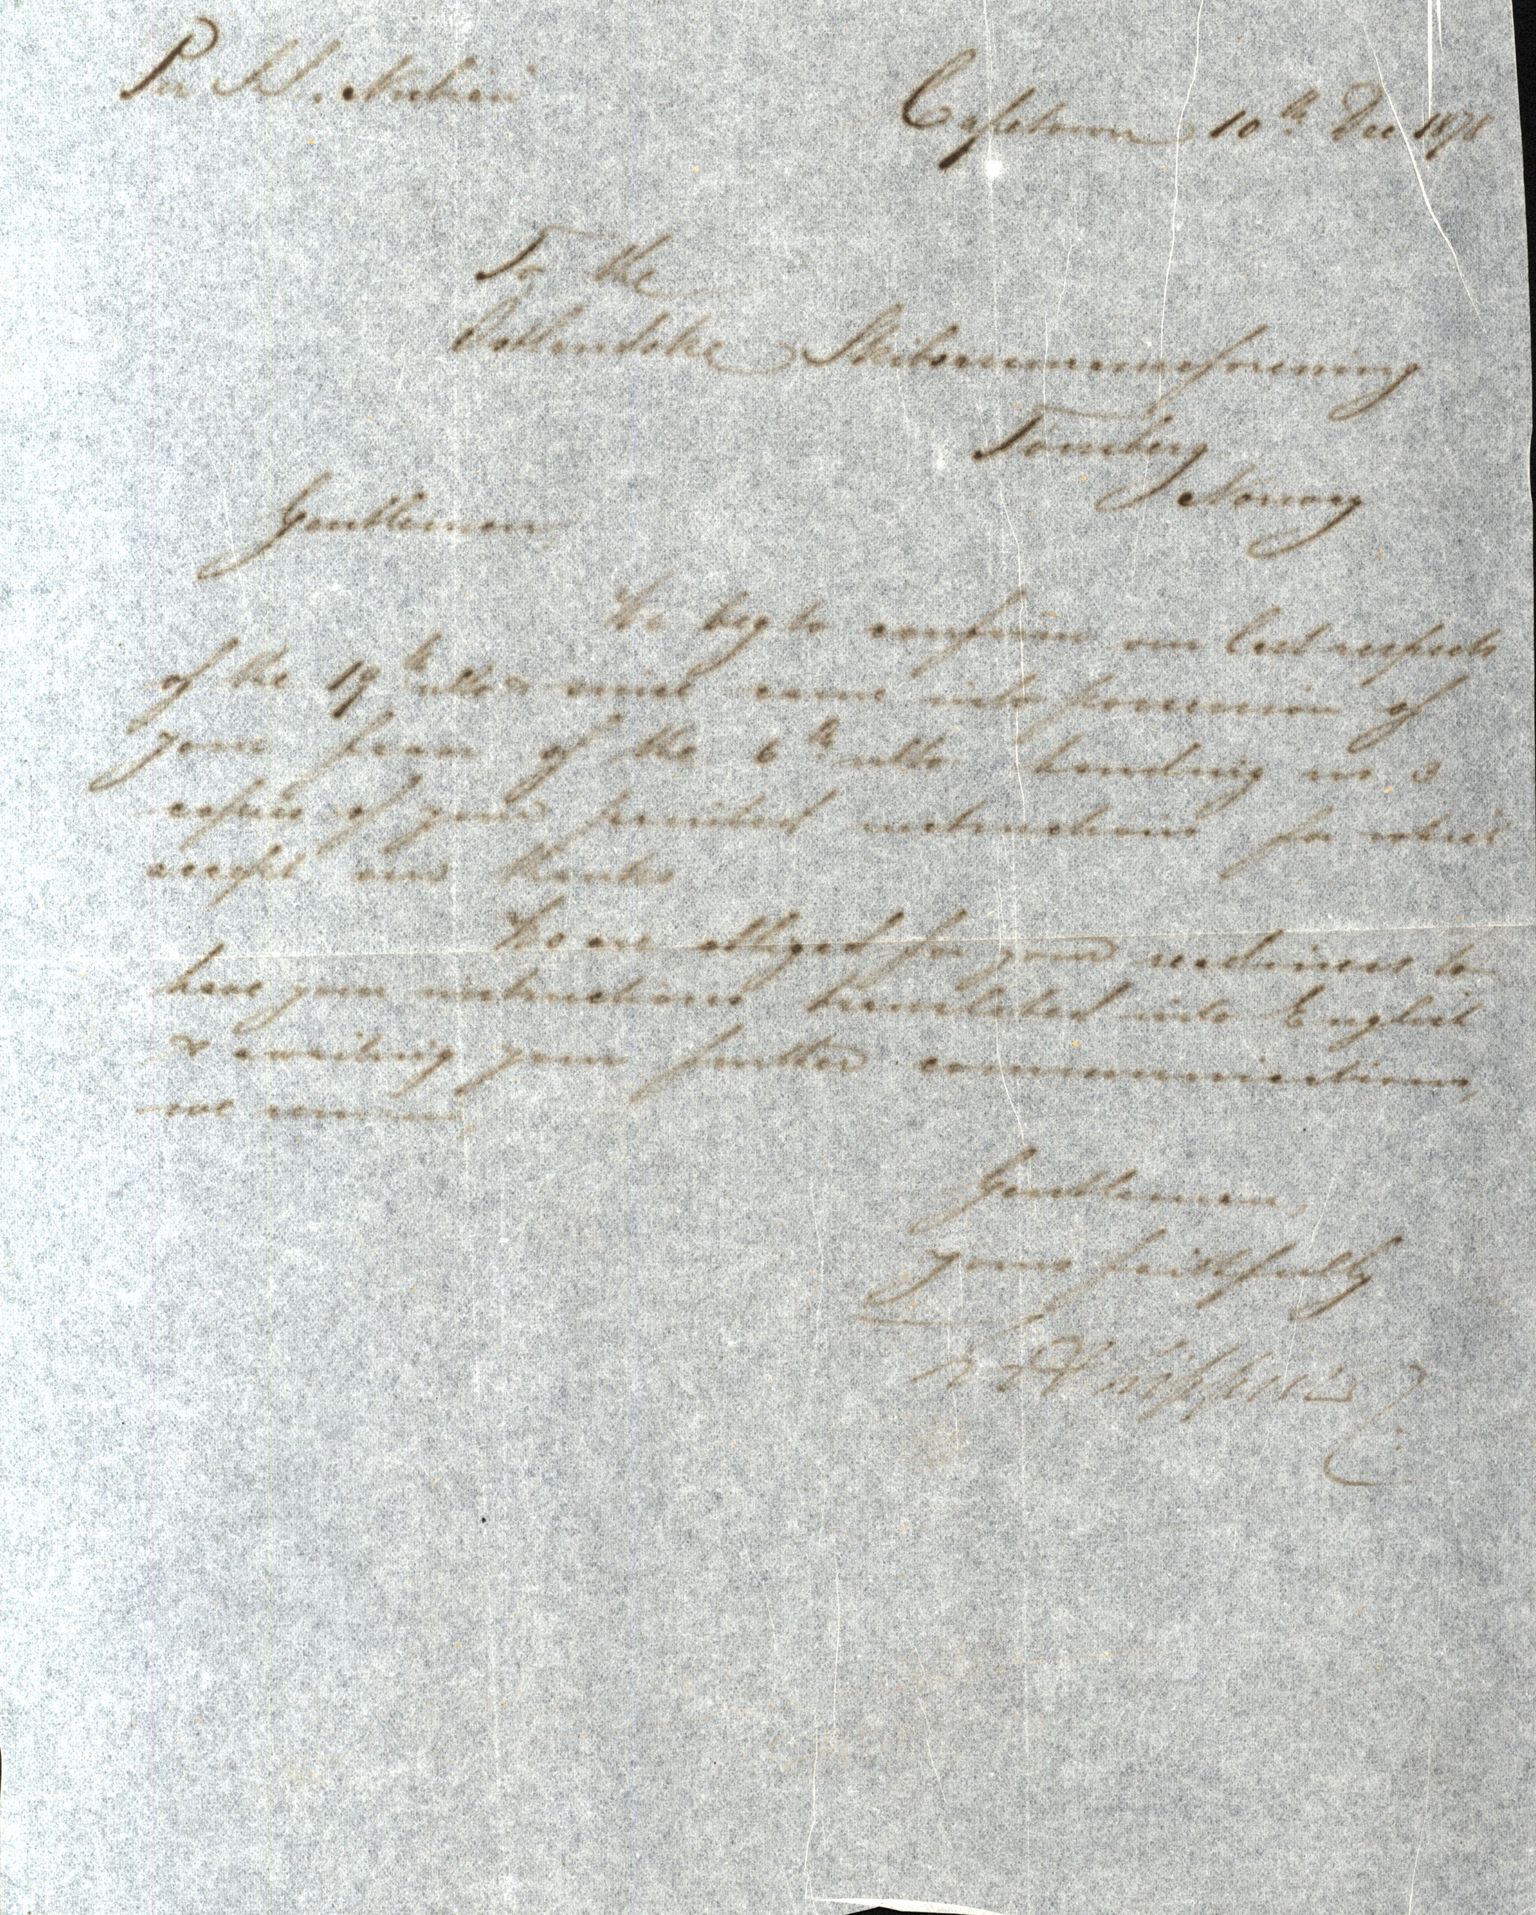 Per S.S.
Capetown 10th Dec 1878
To the
Oestlandske Skibsrumsforening
Tönsberg
Norway
Gentlemen,
We beg to confirm our last respects
of the 19th ulto & since came into possession of
your favor of the 6th ulto handing us 3
copies of your printed instructions for which
accept our thanks
We are obliged for your readiness to
have your instructions translated into English
& awaiting your further communications,
we remain,
Gentlemen,
yours faithfully